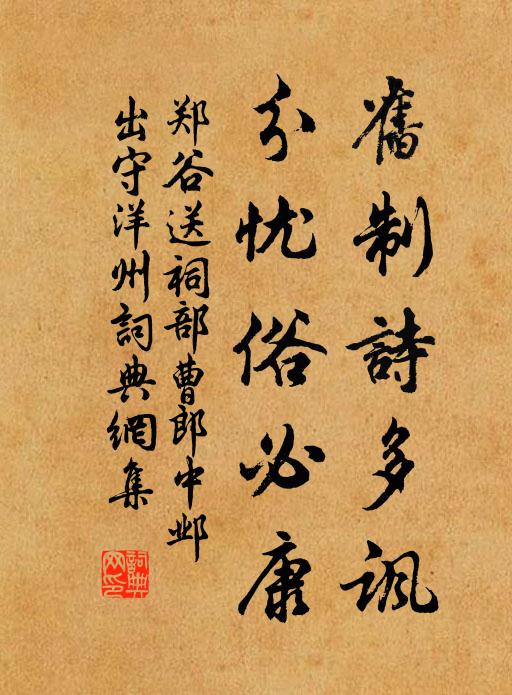 舊制詩多諷
分忧俗必康
郑谷送祠部曹郎中邺
出守洋州詞典網集
詞典
网印